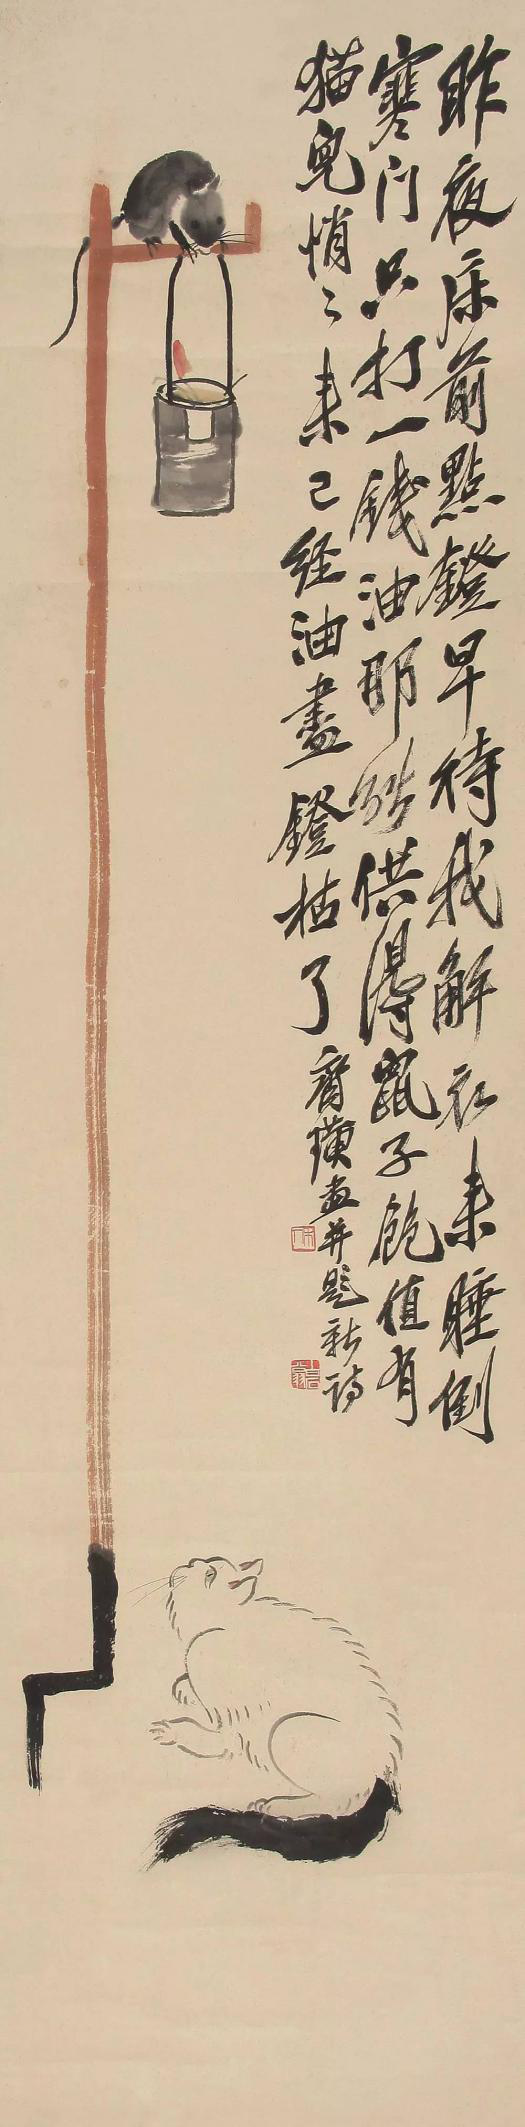 昨夜床前點鐙早待我解衣来睡倒
寒門只打一錢油那能供得鼠子飽值有
猫兒悄〻来已經油盡鐙枯了
齊璜畫并題新詩
木人